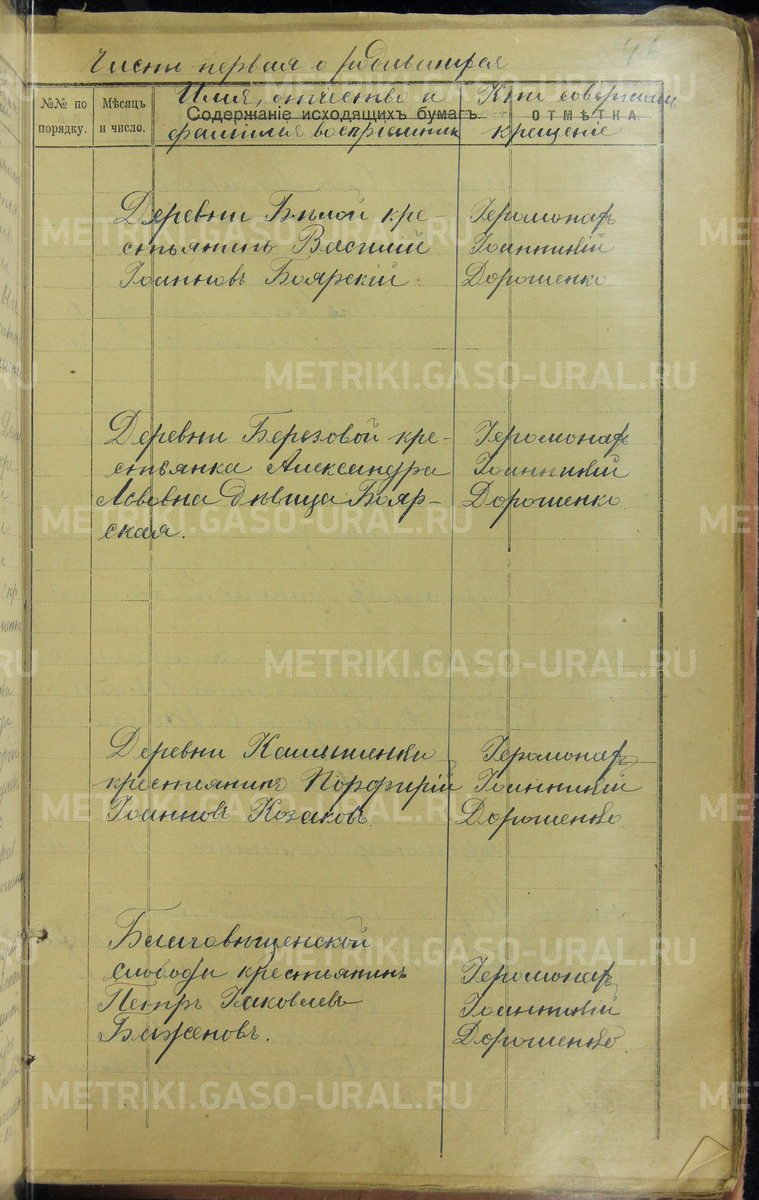 Часть первая о родившихся
№№ по порядку.
Мѣсяцъ и число.
Имя, отчество и
Содержаніе исходящихъ бумагъ.
фамилия воспріемник
Кто совершилъ
ОТМѢТКА
крещеніе
Деревни Бѣлой кре-
стьянинъ Василий
Іоанновъ Боярскій.
Іеромонах
Іоанникій
Дорошенко
Деревни Березовой кре-
стьянка Александра
Львовна дѣвица Бояр-
ская.
Іеромонах
Іоанникій
Дорошенко
Деревни Камышенки
крестьянинъ Порфирій
Іоаннов Козаковъ
Іеромонахъ
Іоанникій
Дорошенко
Благовѣщенской
слободы крестьянинъ
Петръ Іаковлевъ
Баженовъ.
Іеромонахъ
Іоанникій
Дорошенко
METRIKI.GASO-URAL.RU